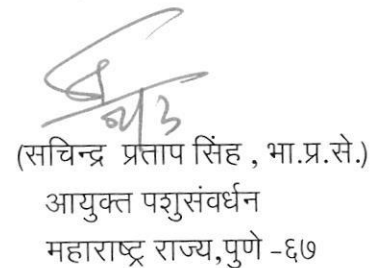 (सचिन्द्र प्रताप सिंह , भा.प्र.से.)
आयुक्त पशुसंवर्धन
महाराष्ट्र राज्य,पुणे -६७